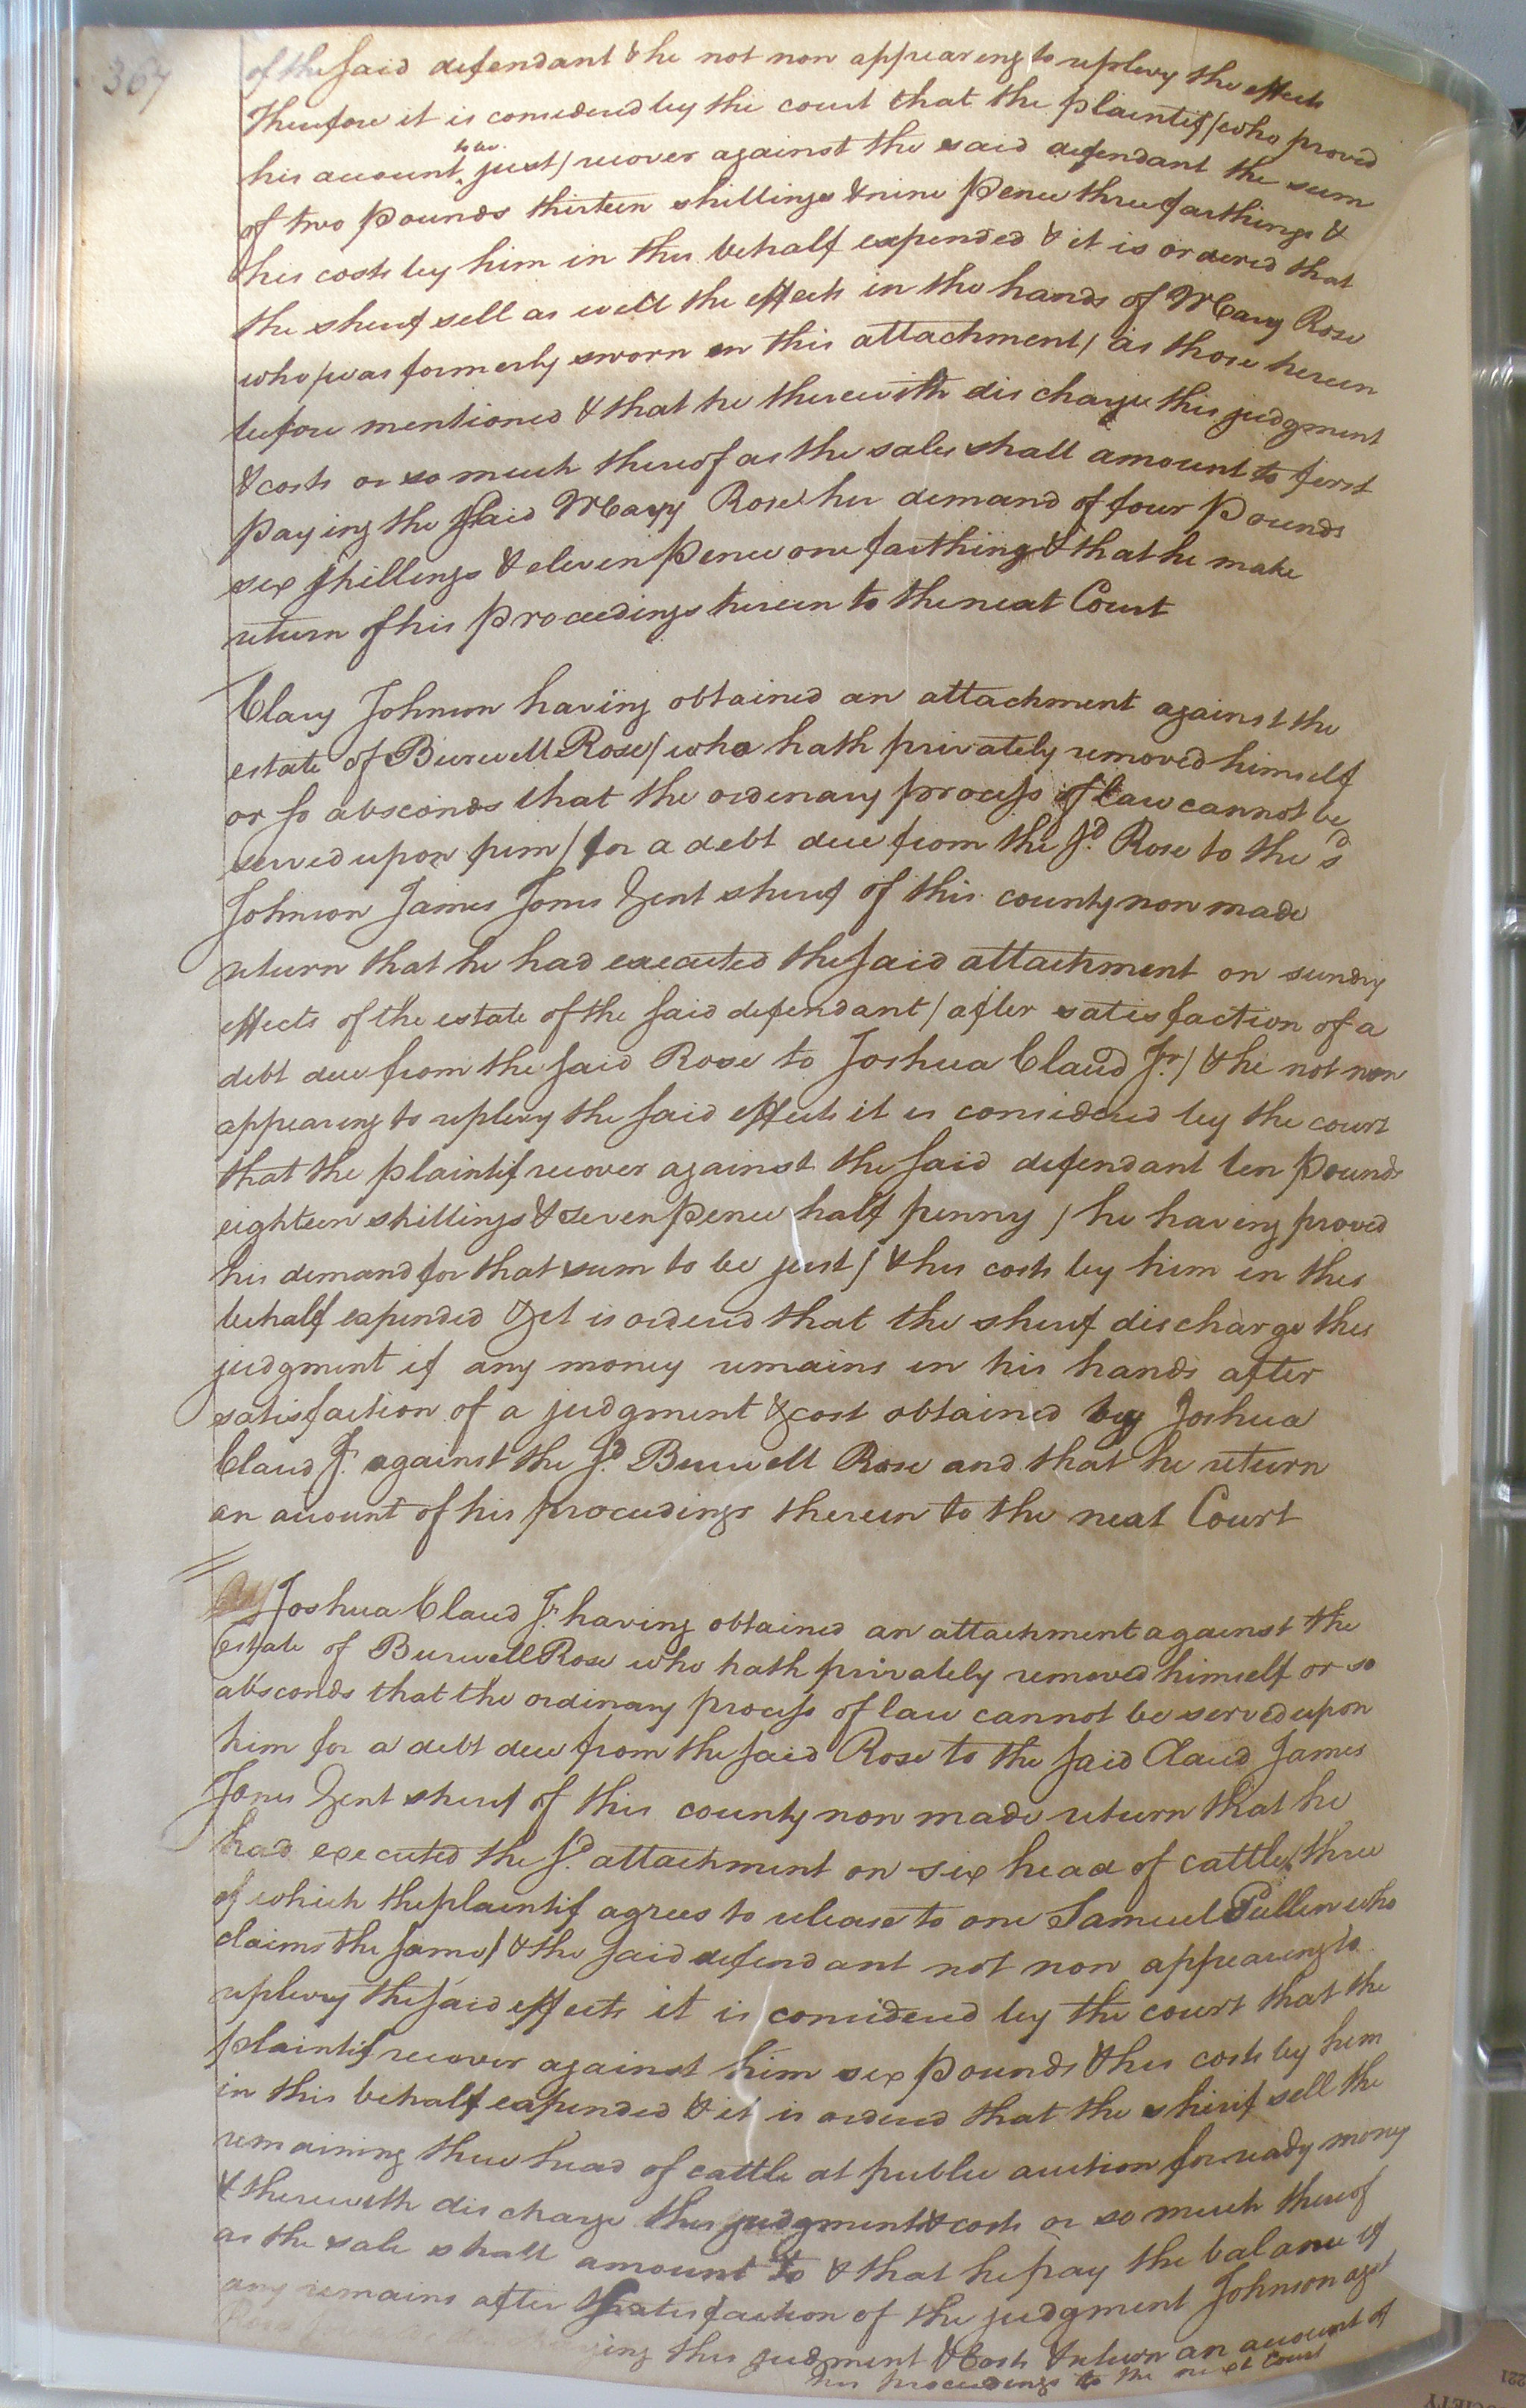 367
of the said defendant & he not now appearing to replevy the effects
Therefore it is considered by the court that the plaintif/who proved
his account to be just/recover against the said defendant the sum
of two pounds thirteen shillings & nine pence three farthings &
his costs by him in this behalf expended & it is ordered that
the sherif sell as well the effects in the hands of Mary Rose
who/was formerly sworn on this attachment/as those herein
before mentioned & that he therewith discharge this judgment
& costs or so much thereof as the sales shall amount to first
paying the said Mary Rose her demand of four pounds
six shillings & eleven pence one farthing & that he make
return of his proceedings herein to the next Court
Clary Johnson having obtained an attachment against the
estate of Burwell Rose/who hath privately removed himself
or so absconds that the ordenary process of law cannot be
served upon him/for a debt due from the sd. Rose to the sd
Johnson James Jones Gent sherif of this county now made
return that he had executed the said attachment on sundry
effects of the estate of the said defendant/after satisfaction of a
debt due from the said Rose to Joshua Claud Jr./& he not now
appearing to replevy the said effects it is considered by the court
that the plaintif recover against the said defendant ten pounds
eighteen shillings & seven pence half penny/he having proved
his demand for that sum to be just/& his costs by him in this
behalf expended & it is ordered that the sherif discharge this
judgment if any money remains in his hands after
satisfaction of a judgment & cost obtained by Joshua
Claud Jr. against the sd. Burwell Rose and that he return
an account of his proceedings therein to the next Court
Joshua Claud Jr. having obtained an attachment against the
Estate of Burwell Rose who hath privately removed himself or so
absconds that the ordinary process of law cannot be served upon
him for a debt due from the said Rose to the said Claud James
Jones Gent sherif of this county now made return that he
had executed the sd. attachment on six head of cattle/three
of which the plaintif agrees to release to one Samuel Pullen who
claims the same/& the said defendant not now appearing to
replevy the said effects it is considered by the court that the
plaintif recover against him six pounds & his costs by him
in this behalf expended & it is ordered that the sherif sell the
remaining three head of cattle at public auction for ready money
& therewith discharge this judgment & costs or so much thereof
as the sale shall amount to & that he pay the balance if
any remains after satisfaction of the judgment Johnson agst
this judgment & Costs & return an account of
his proceedings to the next Court